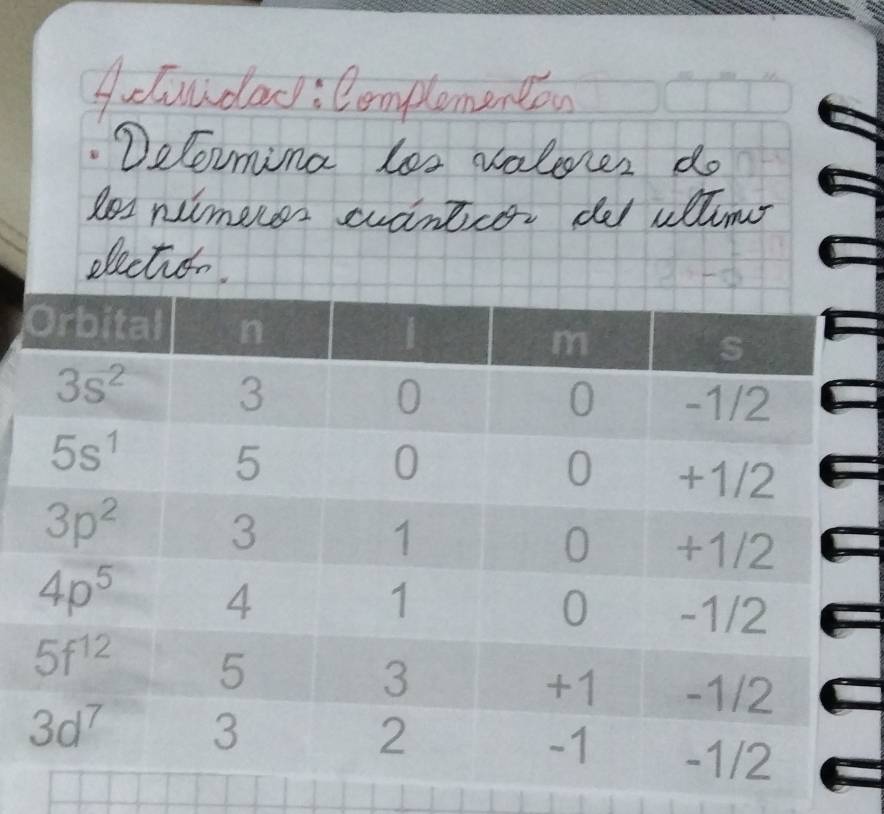 Actividad: Complementon
• Determina los valores de
los números cuánticos del ultimo
electrón.
Orbital n l m s
3s² 3 0 0 -1/2
5s¹ 5 0 0 +1/2
3p² 3 1 0 +1/2
4p⁵ 4 1 0 -1/2
5f¹² 5 3 +1 -1/2
3d⁷ 3 2 -1 -1/2